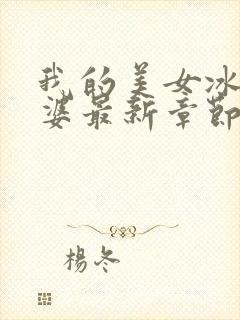 我的美女冰
婆最新章節
楊冬